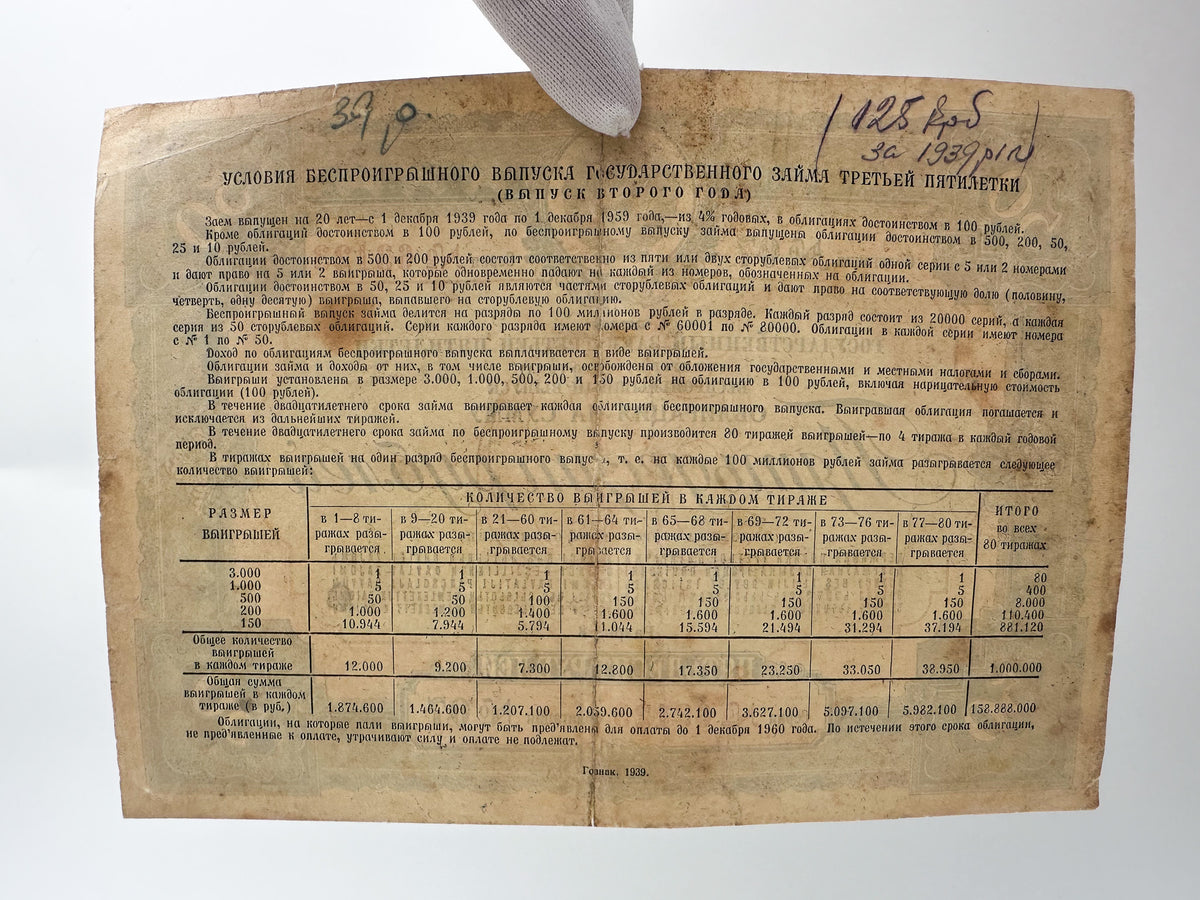 39 р.
(125 крб
за 1939 р
УСЛОВИЯ БЕСПРОИГРЫШНОГО ВЫПУСКА ГОСУДАРСТВЕННОГО ЗАЙМА ТРЕТЬЕЙ ПЯТИЛЕТКИ
(ВЫПУСК ВТОРОГО ГОДА)
Заем выпущен на 20 лет—с 1 декабря 1939 года по 1 декабря 1959 года,—из 4% годовых, в облигациях достоинством в 100 рублей.
Кроме облигаций достоинством в 100 рублей, по беспроигрышному выпуску займа выпущены облигации достоинством в 500, 200, 50,
25 и 10 рублей.
Облигации достоинством в 500 и 200 рублей состоят соответственно из пяти или двух сторублевых облигаций одной серии с 5 или 2 номерами
и дают право на 5 или 2 выигрыша, которые одновременно падают на каждый из номеров, обозначенных на облигации.
Облигации достоинством в 50, 25 и 10 рублей являются частями сторублевых облигаций и дают право на соответствующую долю (половину,
четверть, одну десятую) выигрыша, выпавшего на сторублевую облигацию.
Беспроигрышный выпуск займа делится на разряды по 100 миллионов рублей в разряде. Каждый разряд состоит из 20000 серий, а каждая
серия из 50 сторублевых облигаций. Серии каждого разряда имеют номера с № 60001 по № 80000. Облигации в каждой серии имеют номера
с № 1 по № 50.
Доход по облигациям беспроигрышного выпуска выплачивается в виде выигрышей.
Облигации займа и доходы от них, в том числе выигрыши, освобождены от обложения государственными и местными налогами и сборами.
Выигрыши установлены в размере 3.000, 1.000, 500, 200 и 150 рублей на облигацию в 100 рублей, включая нарицательную стоимость
облигации (100 рублей).
В течение двадцатилетнего срока займа выигрывает каждая облигация беспроигрышного выпуска. Выигравшая облигация погашается и
исключается из дальнейших тиражей.
В течение двадцатилетнего срока займа по беспроигрышному выпуску производится 80 тиражей выигрышей—по 4 тиража в каждый годовой
период.
В тиражах выигрышей на один разряд беспроигрышного выпуска, т. е. на каждые 100 миллионов рублей займа разыгрывается следующее
количество выигрышей:
РАЗМЕР ВЫИГРЫШЕЙ КОЛИЧЕСТВО ВЫИГРЫШЕЙ В КАЖДОМ ТИРАЖЕ ИТОГО
в 1—8 ти- в 9—20 ти- в 21—60 ти- в 61—64 ти- в 65—68 ти- в 69—72 ти- в 73—76 ти- в 77—80 ти- во всех
ражах разы- ражах разы- ражах разы- ражах разы- ражах разы- ражах разы- ражах разы- ражах разы- 80 тиражах
грывается грывается грывается грывается грывается грывается грывается грывается
3.000 1 1 1 1 1 1 1 1 80
1.000 5 5 5 5 5 5 5 5 400
500 50 50 100 150 150 150 150 150 8.000
200 1.000 1.200 1.400 1.600 1.600 1.600 1.600 1.600 110.400
150 10.944 7.944 5.794 11.044 15.594 21.494 31.294 37.194 881.120
Общее количество
выигрышей
в каждом тираже 12.000 9.200 7.300 12.800 17.350 23.250 33.050 38.950 1.000.000
Общая сумма
выигрышей в каждом
тираже (в руб.) 1.874.600 1.464.600 1.207.100 2.059.600 2.742.100 3.627.100 5.097.100 5.982.100 158.888.000
Облигации, на которые пали выигрыши, могут быть пред'явлены для оплаты до 1 декабря 1960 года. По истечении этого срока облигации,
не пред'явленные к оплате, утрачивают силу и оплате не подлежат.
Гознак. 1939.